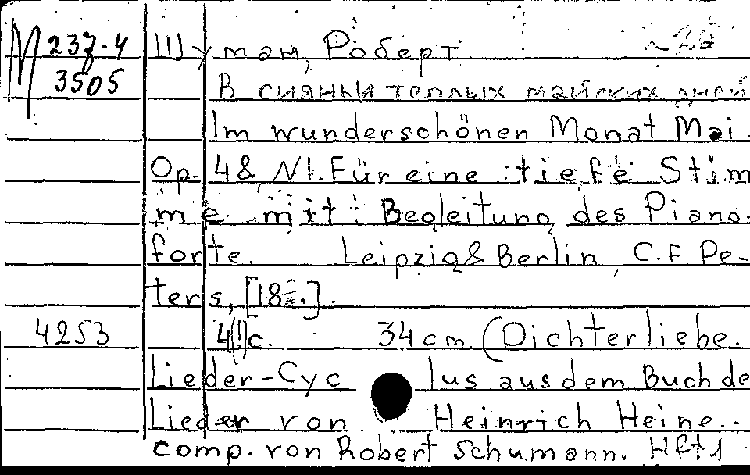 М 237-4 Шуман, Роберт
3505 В сиянии теплых майских дней
Im wunderschönen Monat Mai.
Op. 48 N1. Für eine tiefe Stim
me mit Begleitung des Piano-
forte. Leipzig & Berlin, C.F. Pe-
ters, [18
4253 4(!)с. 34 cm. (Dichterliebe.
Lieder-Cyc lus aus dem Buch de
Lieder von Heinrich Heine..
comp. von Robert Schumann. Hft 1